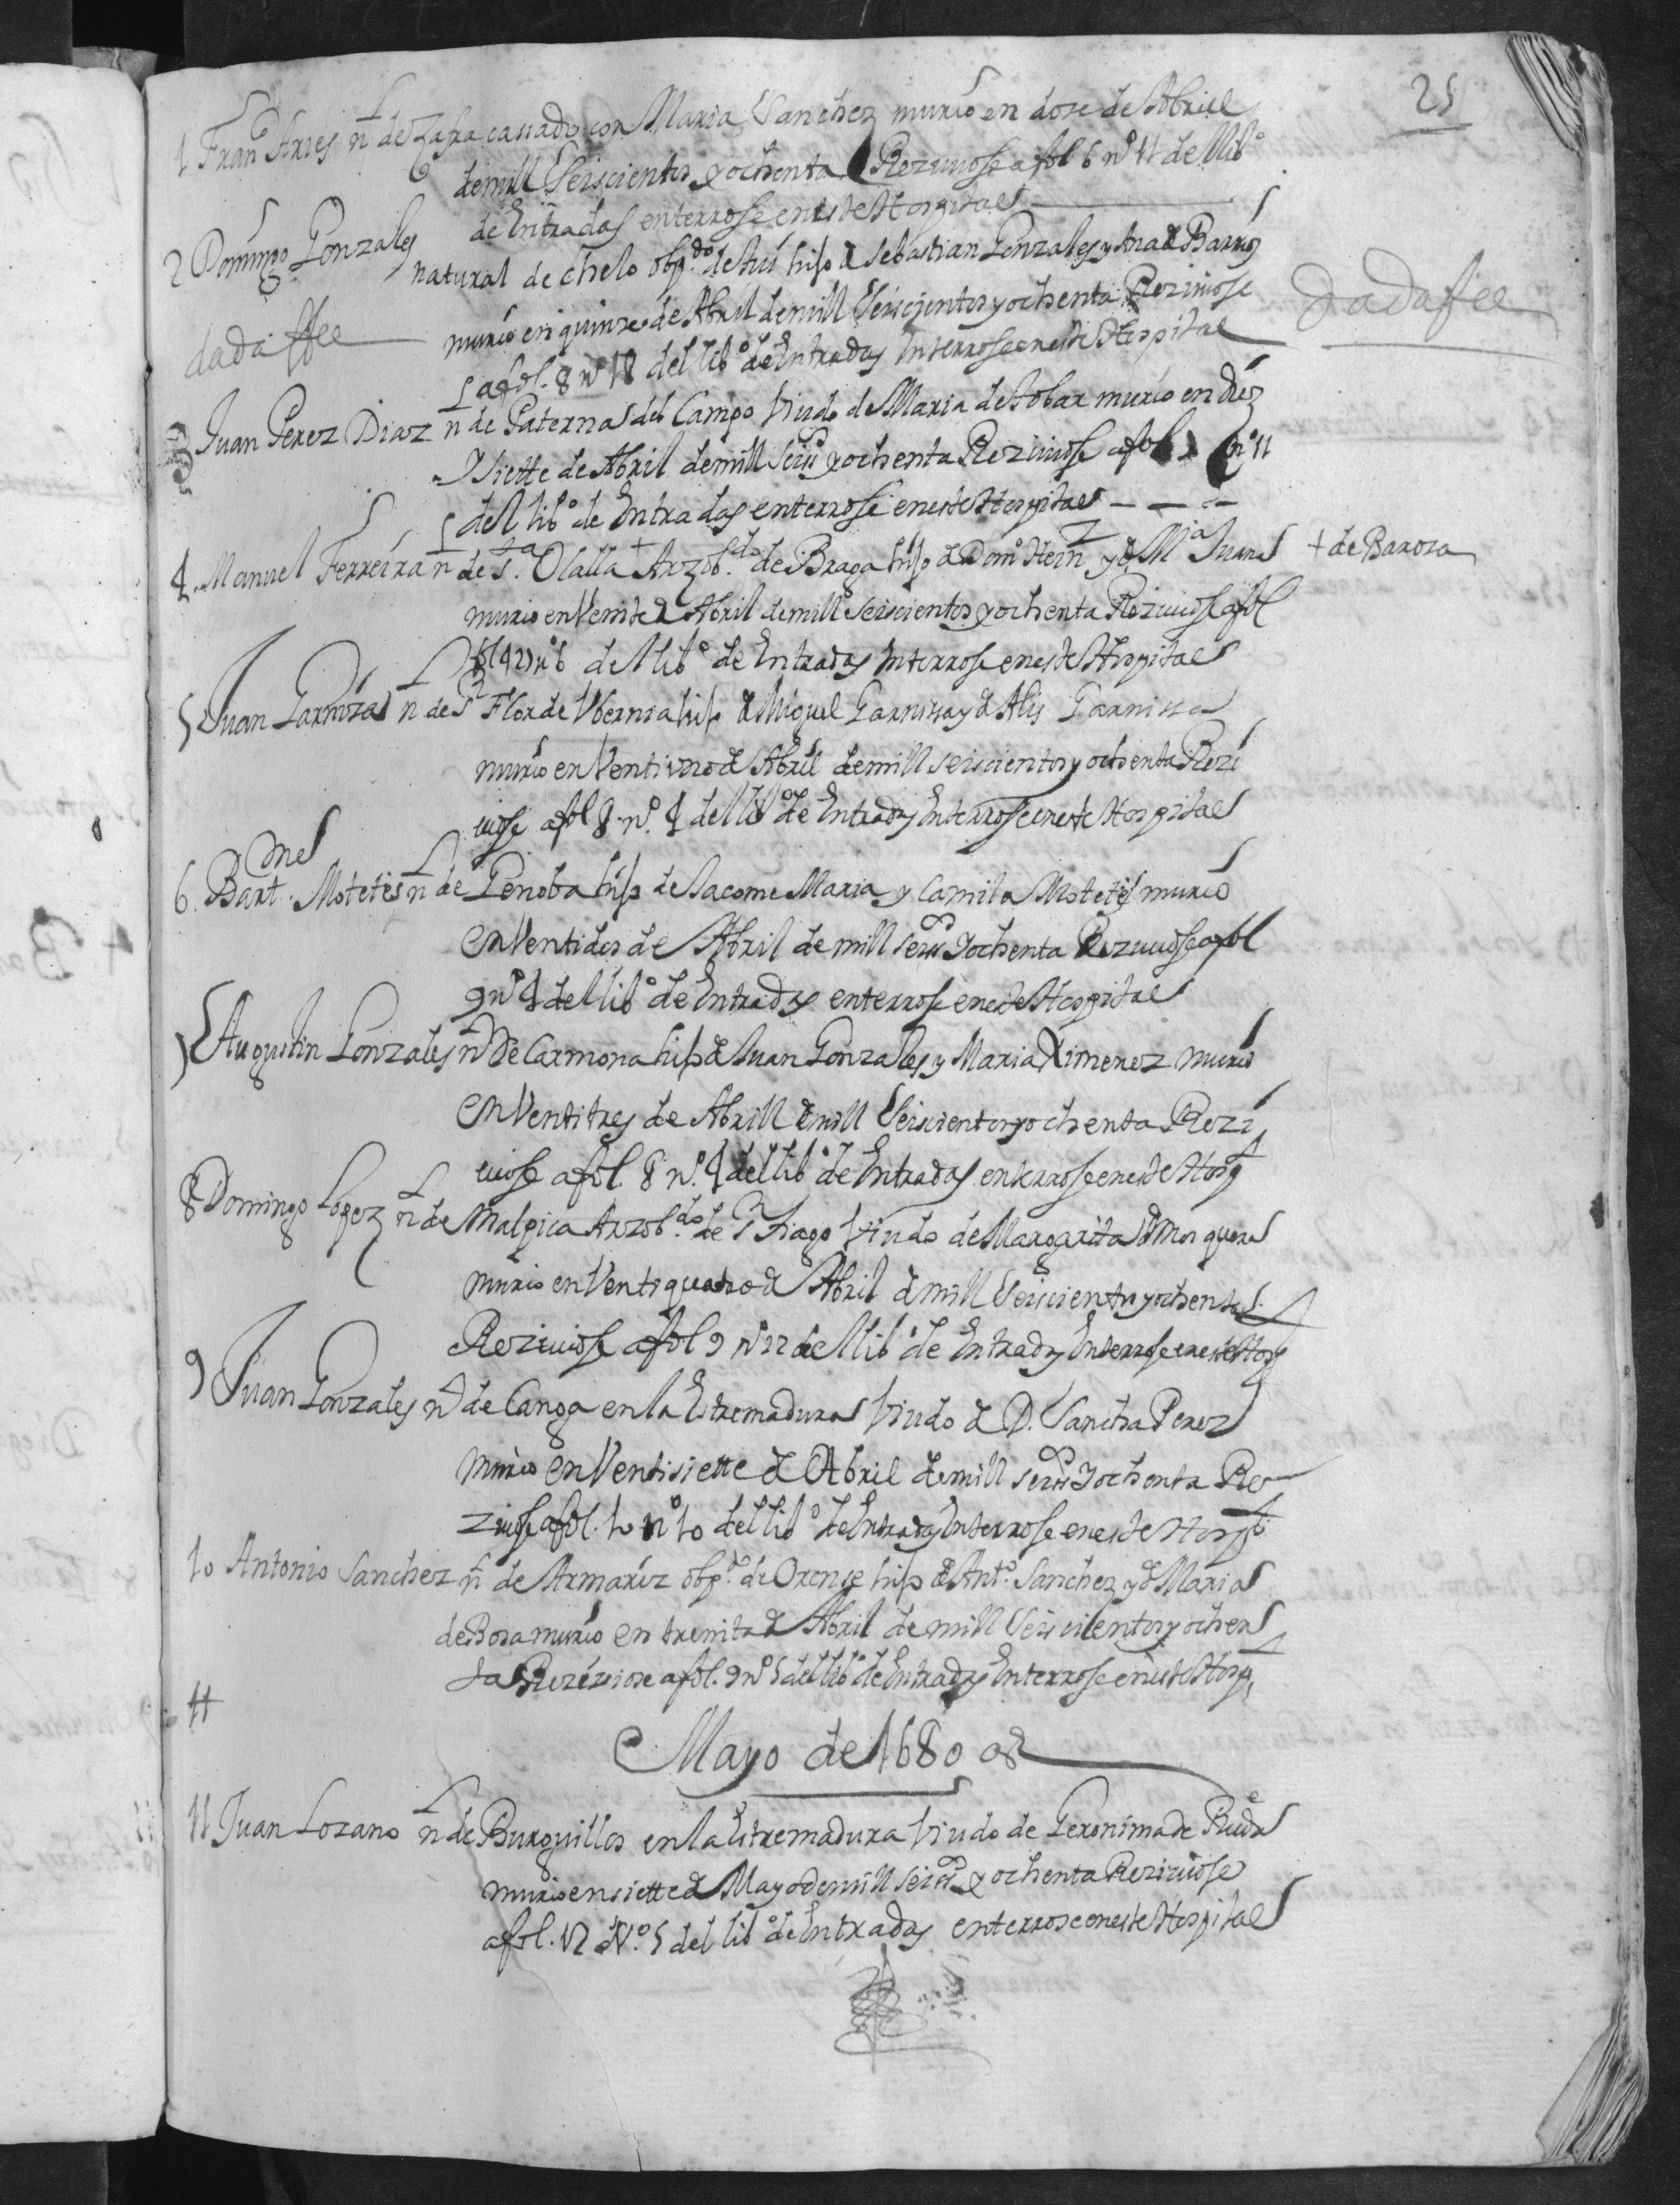 25
1 Fran.co Aries n.l de Zafra cassado con Maria Sanchez murio en dose de Abriel
de mill Seiscientos y ochenta Reziuiose a fol 6 nº 11 del libº
de Entradas enterrose en este Hospital
2 Domingo Gonzales
natural de chelo obp.do de tui hijo d Sebastian Gonzales y Ana d Barros
dada ffee
murio en quinze de Abril de mill Seiscientos y ochenta Reziuiose
dada fee
a fol. 8 nº 18 del libº de Entradas Enterrose en este Hospital
3 Juan Perez Diaz n de Paterna del Campo Viudo de Maria de Tobar murio en diez
y siette de Abril de mill seisº y ochenta Reziuiose a fol nº 11
del libº de Entradas enterrose en este Hospital
4. Manuel Ferreira n de S.ta Olalla + Arzob.do de Braga hijo d Domº Hern y d M.ia Juan
+ de Barosa
murio en Veinte d Abril de mill seiscientos y ochenta Reziuiose a fol
nº 6 del libº de Entradas Enterrose en este Hospital
5 Juan Garniza n de S.n Flor de Vbernia hijo d Miguel Garnissa y d Alis Garnissa
murio en Ventiuno d Abril de mill seiscientos y ochenta Rezi
uiose a fol 8 nº. 4 del libº de Entradas Enterrose en este Hospital
6. Bart.me Motetis n de Genoba hijo de Jacome Maria y Camila Motetis murio
en Ventidos de Abril de mill seisº y ochenta Reziuiose a fol
9 nº 4 del libº de Entradas enterrose en este Hospital
7 Augustin Gonzales n de Carmona hijo d Juan Gonzales y Maria Ximenez murio
en Ventitres de Abrill d mill Seiscientos y ochenta Rezi
uiose a fol. 8 nº. 4 del libº de Entradas enterrose en este Hosp.l
8 Domingo Lopez n de Malpica Arzob.do de S.n Tiago Viudo de Margarita d Mosquera
murio en Ventiquatro d Abril d mill Seiscientos y ochenta
Reziuiose a fol 9 nº 22 del libº de Entradas Enterrose en este Hosp.l
9 Juan Gonzales n de Canga en la Estremadura Viudo d D. Sancha Perez
murio en Ventisiette d Abril de mill seisº y ochenta Re
ziuiose a fol. 10 nº 10 del libº de Entradas Enterrose en este Hosp.l
10 Antonio Sanchez n de Armariz obp.do de Orense hijo d Antº. Sanchez y d Maria
de Bosa murio en treinta d Abril de mill Seiscientos y ochen
ta Reziuiose a fol. 9 nº 5 del libº de Entradas Enterrose en este Hosp.l
11
Mayo de 1680 as
11 Juan Lozano n de Burguillos en la Estremadura Viudo de Geronima de Rueda
murio en siette d Mayo de mill seisº y ochenta Reziuiose
a fol. 12 Nº. 5 del libº de Entradas enterrose en este Hospital